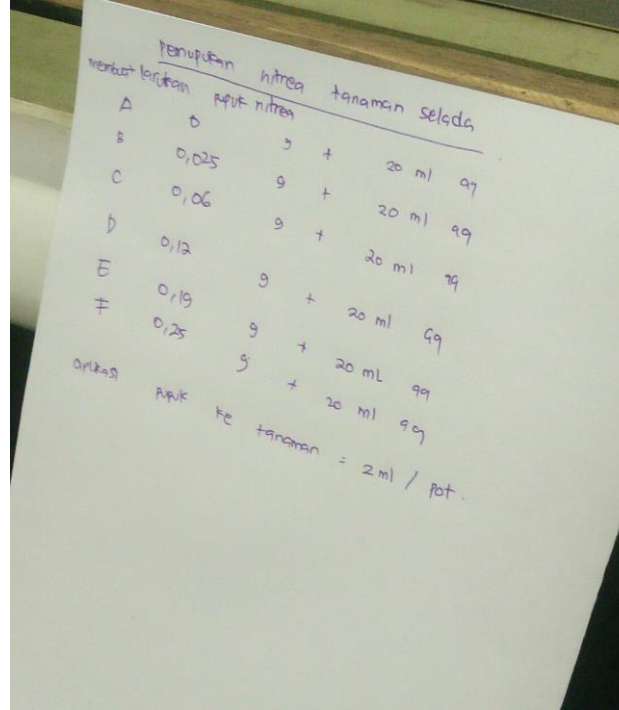 pemupukan nitrea tanaman selada
membuat larutan pupuk nitrea
A 0 g + 20 ml aq
B 0,025 g + 20 ml aq
C 0,06 g + 20 ml aq
D 0,12 g + 20 ml aq
E 0,19 g + 20 mL aq
F 0,25 g + 20 ml aq
aplikasi pupuk ke tanaman = 2 ml / pot.